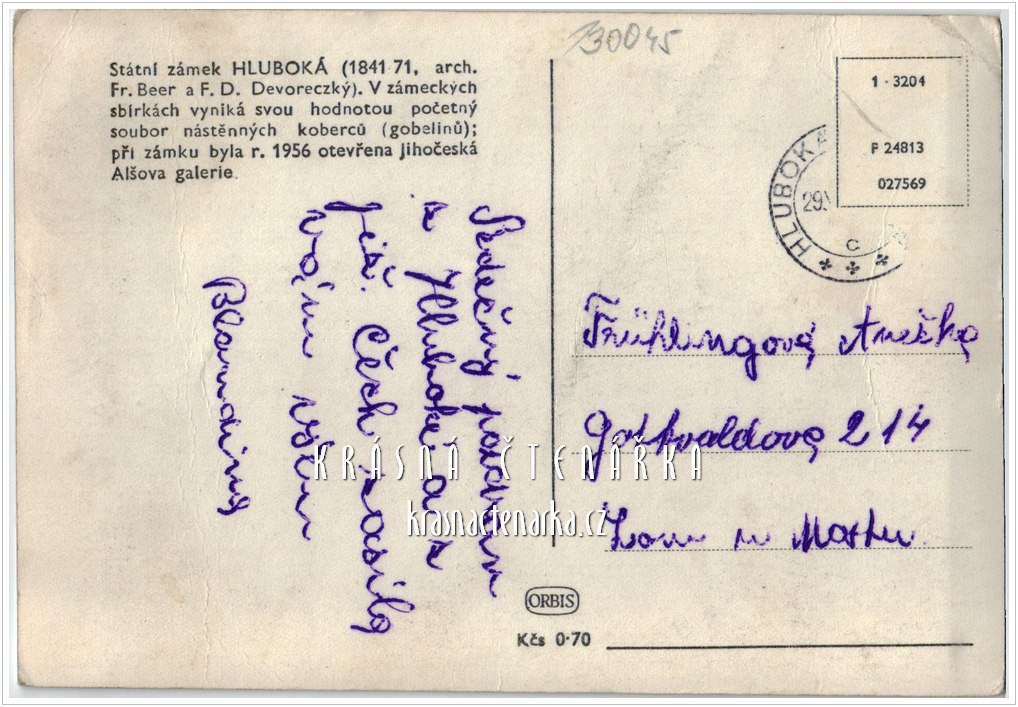 730045
Státní zámek HLUBOKÁ (1841-71, arch.
Fr. Beer a F. D. Devoreczký). V zámeckých
sbírkách vyniká svou hodnotou početný
soubor nástěnných koberců (gobelinů);
při zámku byla r. 1956 otevřena Jihočeská
Alšova galerie.
1 - 3204
F 24813
027569
HLUBOKÁ
29.
c
Srdečný pozdrav
z Hluboké a z
již. Čech zasílá
vám všem
Frühlingová Anežka
Gottvaldova 214
Lom u Mostu
KRÁSNÁ ČTENÁŘKA
krasnactenarka.cz
ORBIS
Kčs 0·70